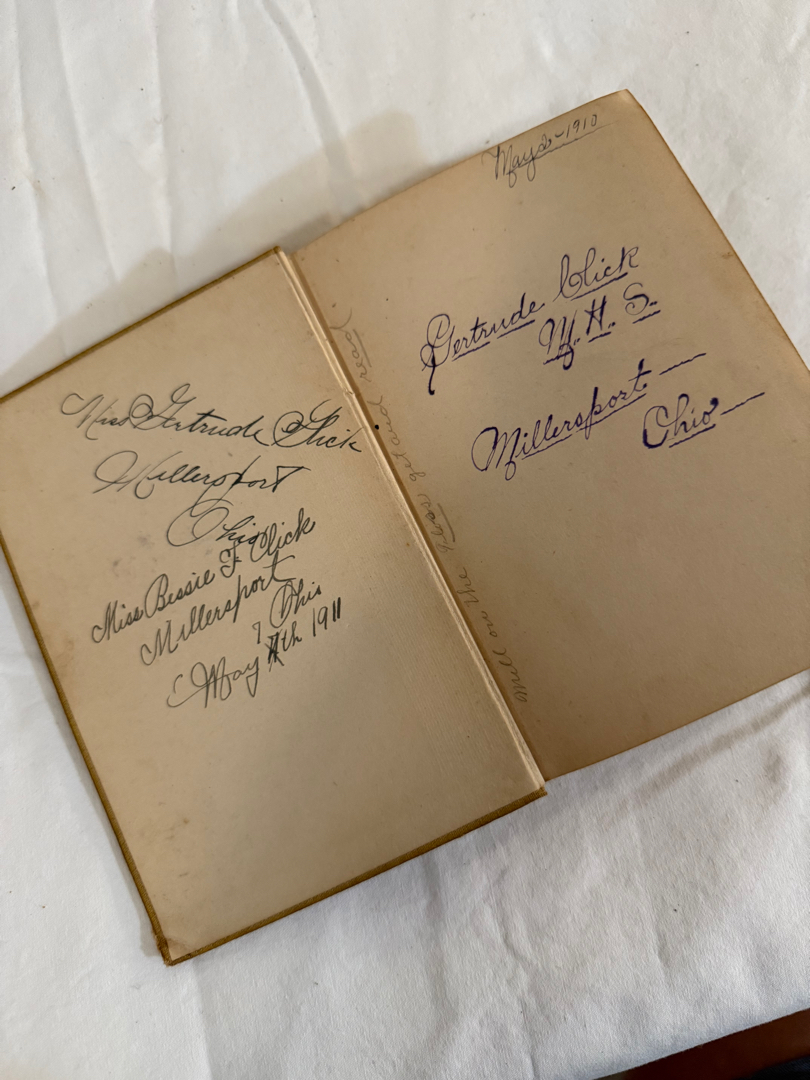 Miss Gertrude Click
Millersport
Ohio
Miss Bessie F. Click
Millersport
Ohio
May 7th 1911
May 1910
Gertrude Click
M. H. S.
Millersport
Ohio
Mill on the Floss get and read.